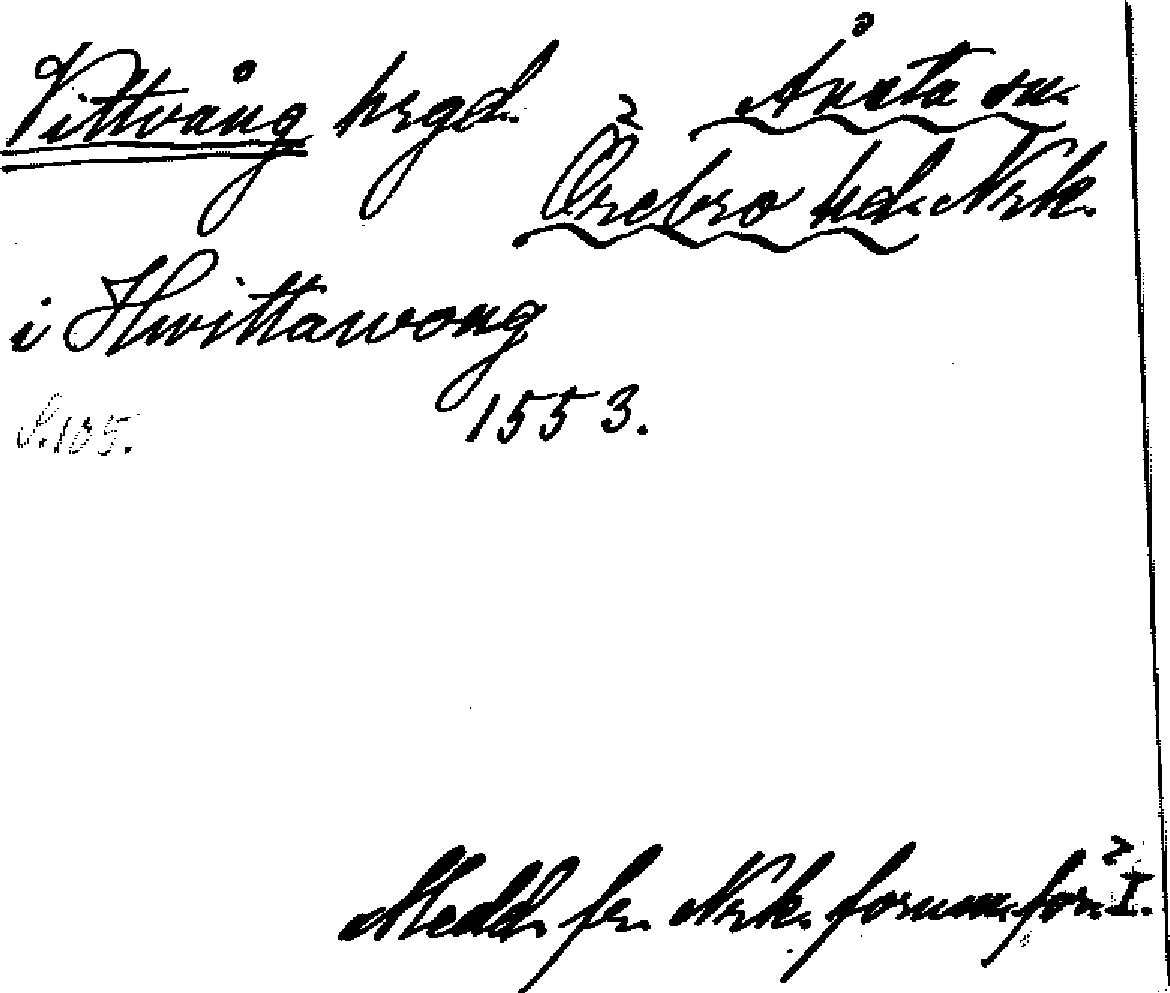 Vittvång hrgd. Ånsta sn.
Örebro hd. Nrk.
i Hwittawong
S. 105. 1553.
Medd. fr. Nrk. fornm. för. I.